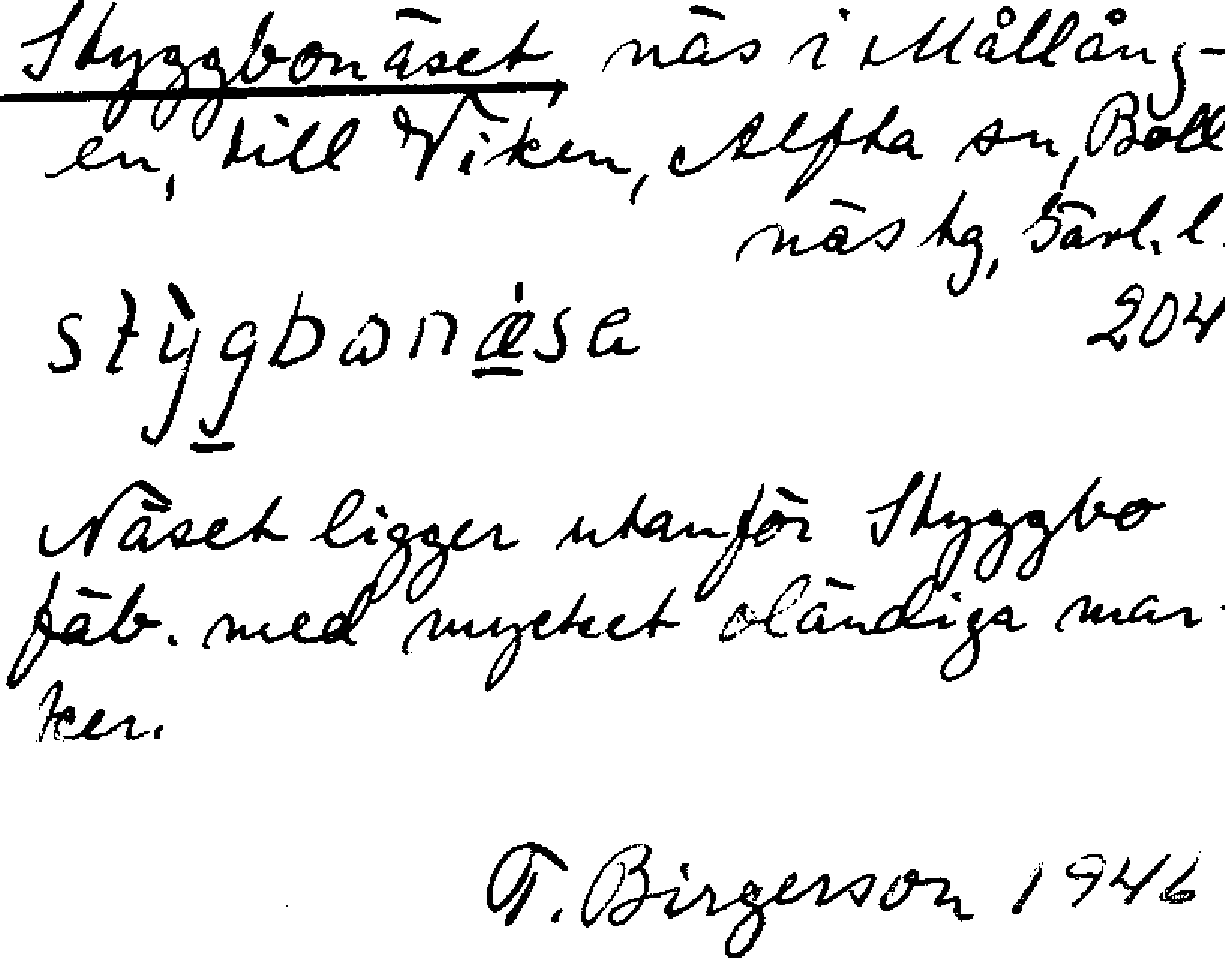 Styggbonäset, näs i Mållång-
en, till Viken, Alfta sn, Boll
näs tg, Gävl. l.
204
stỳgbonæ̀sa
Näset ligger utanför Styggbo
fäb. med mycket oländiga mar-
ker.
T. Birgerson 1946